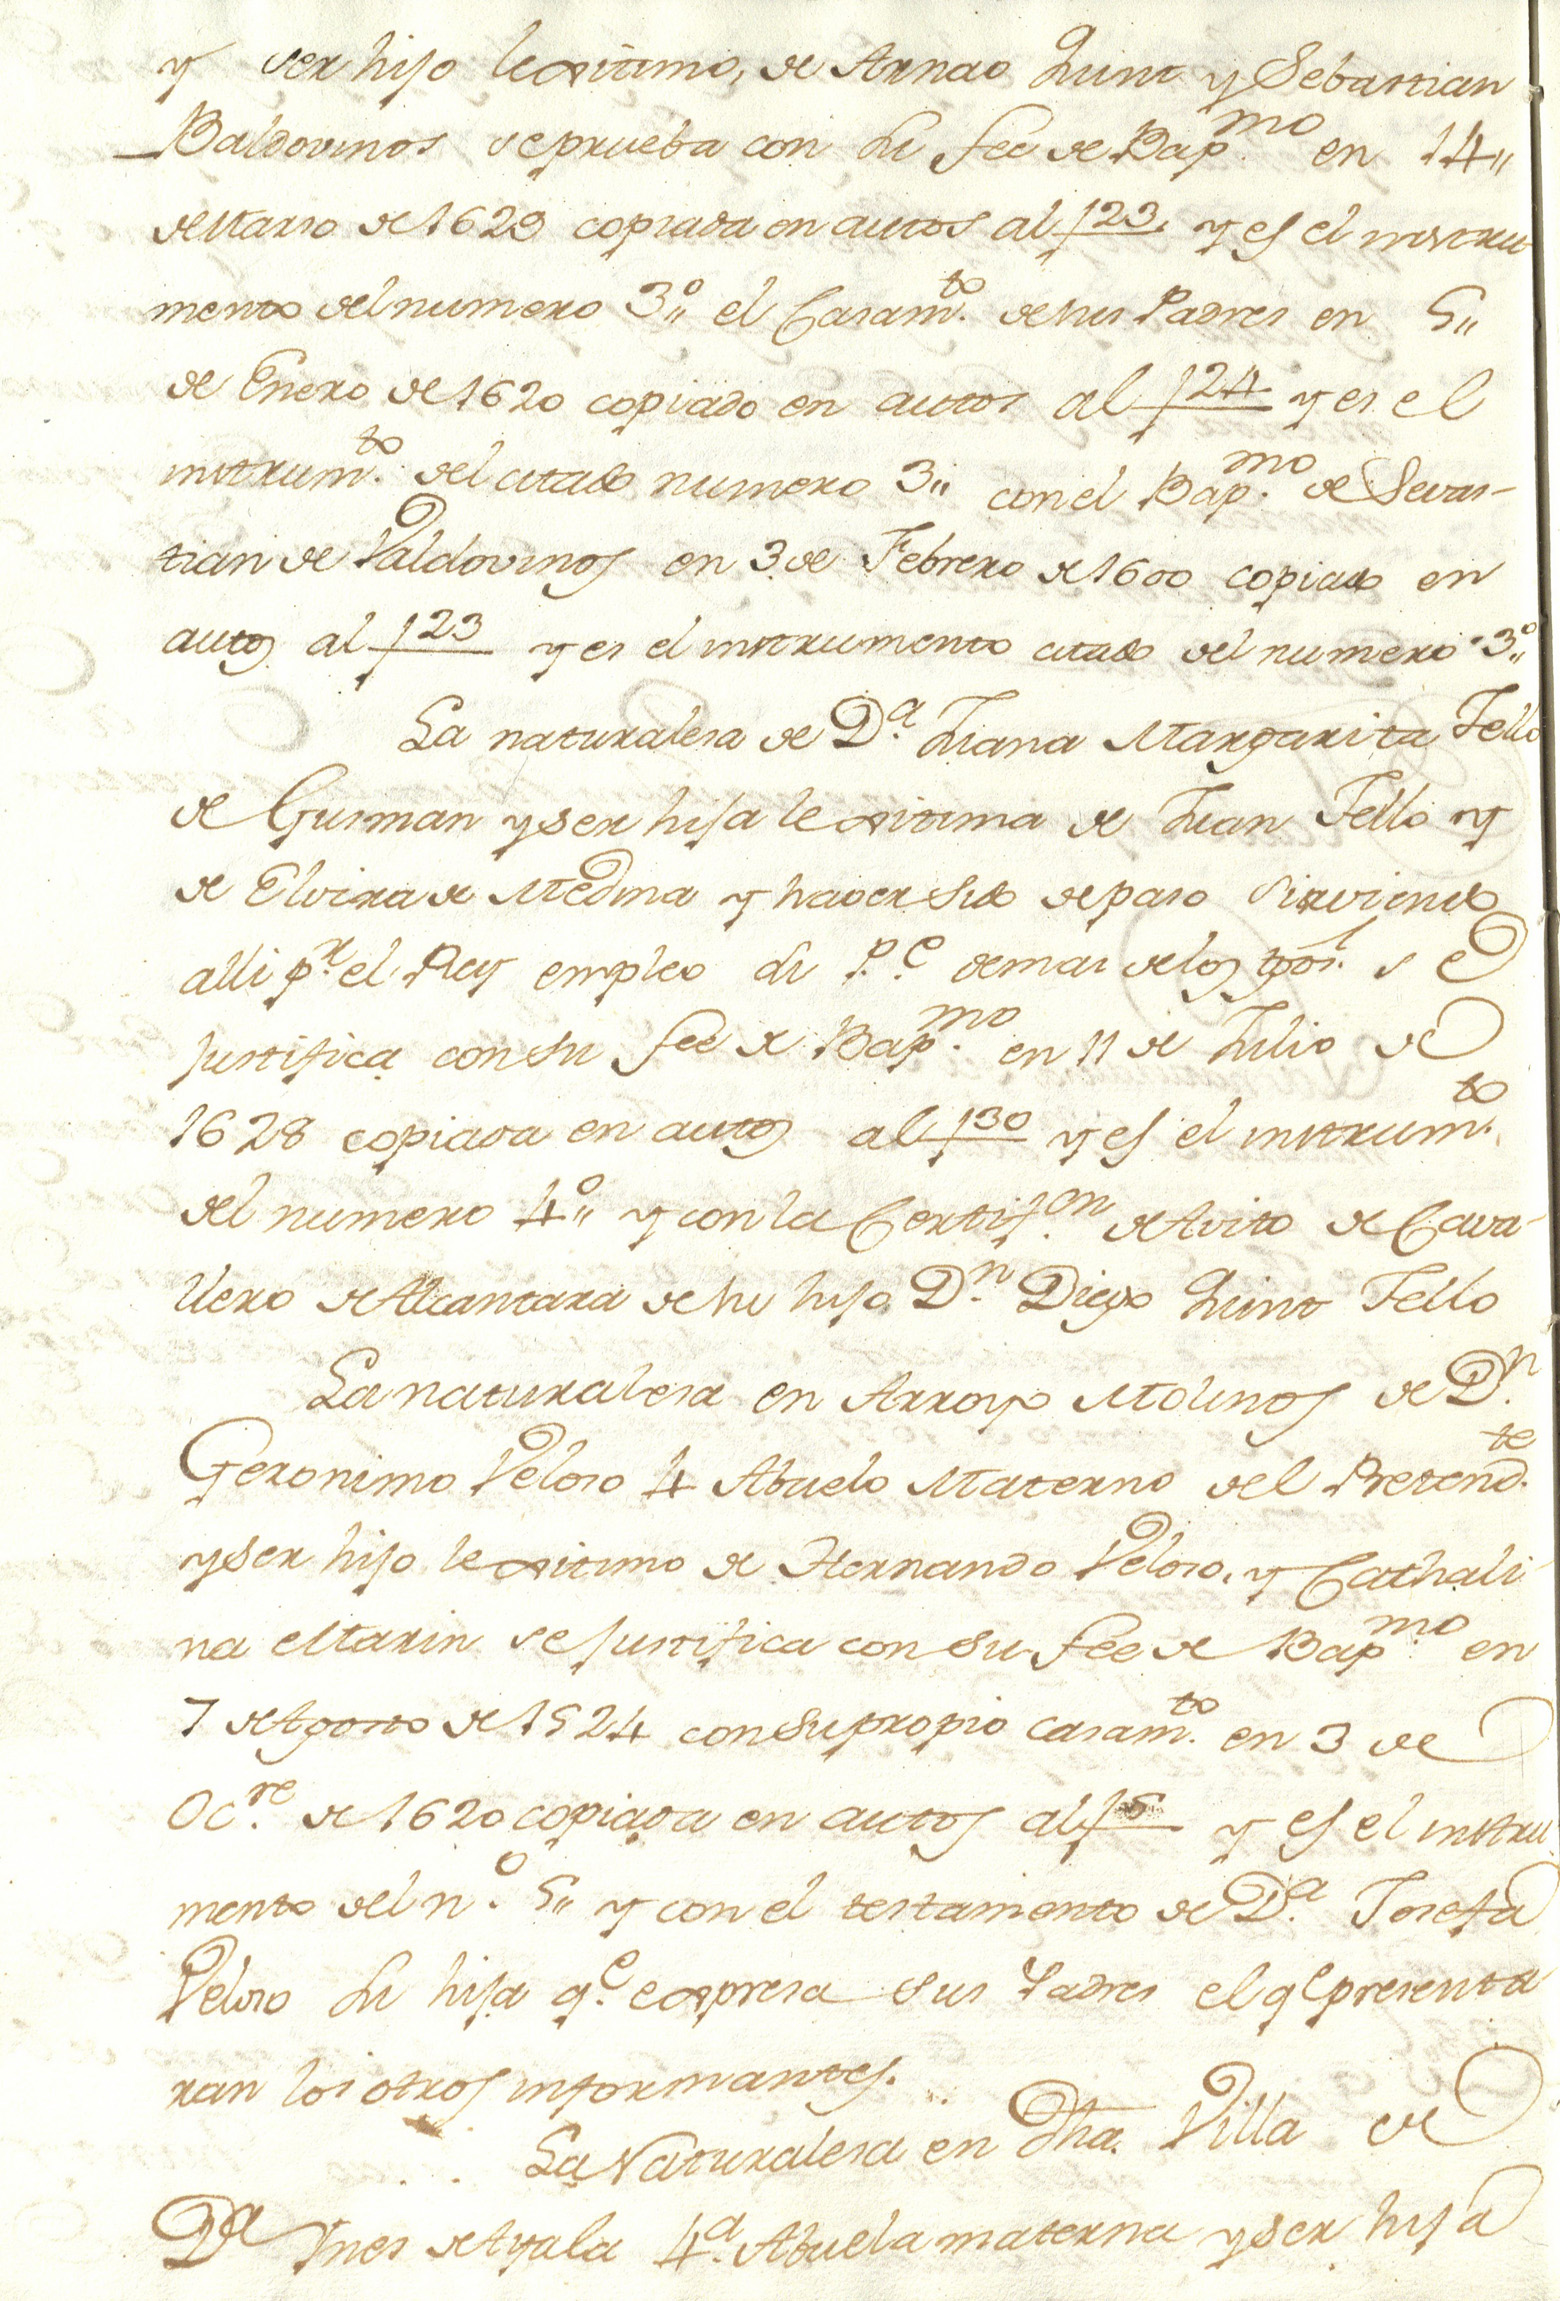 y ser hijo lexitimo, de Arnao Quint y Sebastian
Baldovinos se prueba con su fee de Bap.mo en 14„
de Marso de 1623 copiada en autos al f 23. y es el instru
mento del numero 3.º„ el Casam.to de sus Padres en 5„
de Enero de 1620 copiado en autos al f 24 y es el
instrum.to del citado numero 3„ con el Bap.mo de Sevas-
tian de Valdovinos en 3 de Febrero de 1600 copiado en
autos al f 23 y es el instrumento citado del numero 3.º„
La naturalesa de D.a Juana Margarita Tello
de Gusman y ser hija lexitima de Juan Tello y
de Elvira de Medina y haver sido de paso sirviendo
alli p.r el Rey empleo su P.e demas de los tgos. se
justifica con su fee de Bap.mo en 11 de Julio de
1628 copiada en autos al f 30 y es el instrum.to
del numero 4.º„ y con la Certif.on de Avito de Cava-
llero de Alcantara de su hijo D.n Diego Quint Tello
La naturalesa en Arroyo Molinos de D.n
Geronimo Veloso 4 Abuelo Materno del Pretend.te
y ser hijo lexitimo de Hernando Veloso, y Cathali-
na Marin se justifica con su fee de Bap.mo en
7 de Agosto de 1524 con su propio casam.to en 3 de
Oc.re de 1620 copiada en autos al f 5 y es el instru
mento del n.º 5„ y con el testamento de D.a Josefa
Veloso su hija q.e expresa sus Padres el q.e presenta
ran los otros informantes.
La Naturalesa en Dha. Villa de
D.a Ynes de Ayala 4.a Abuela materna y ser hija